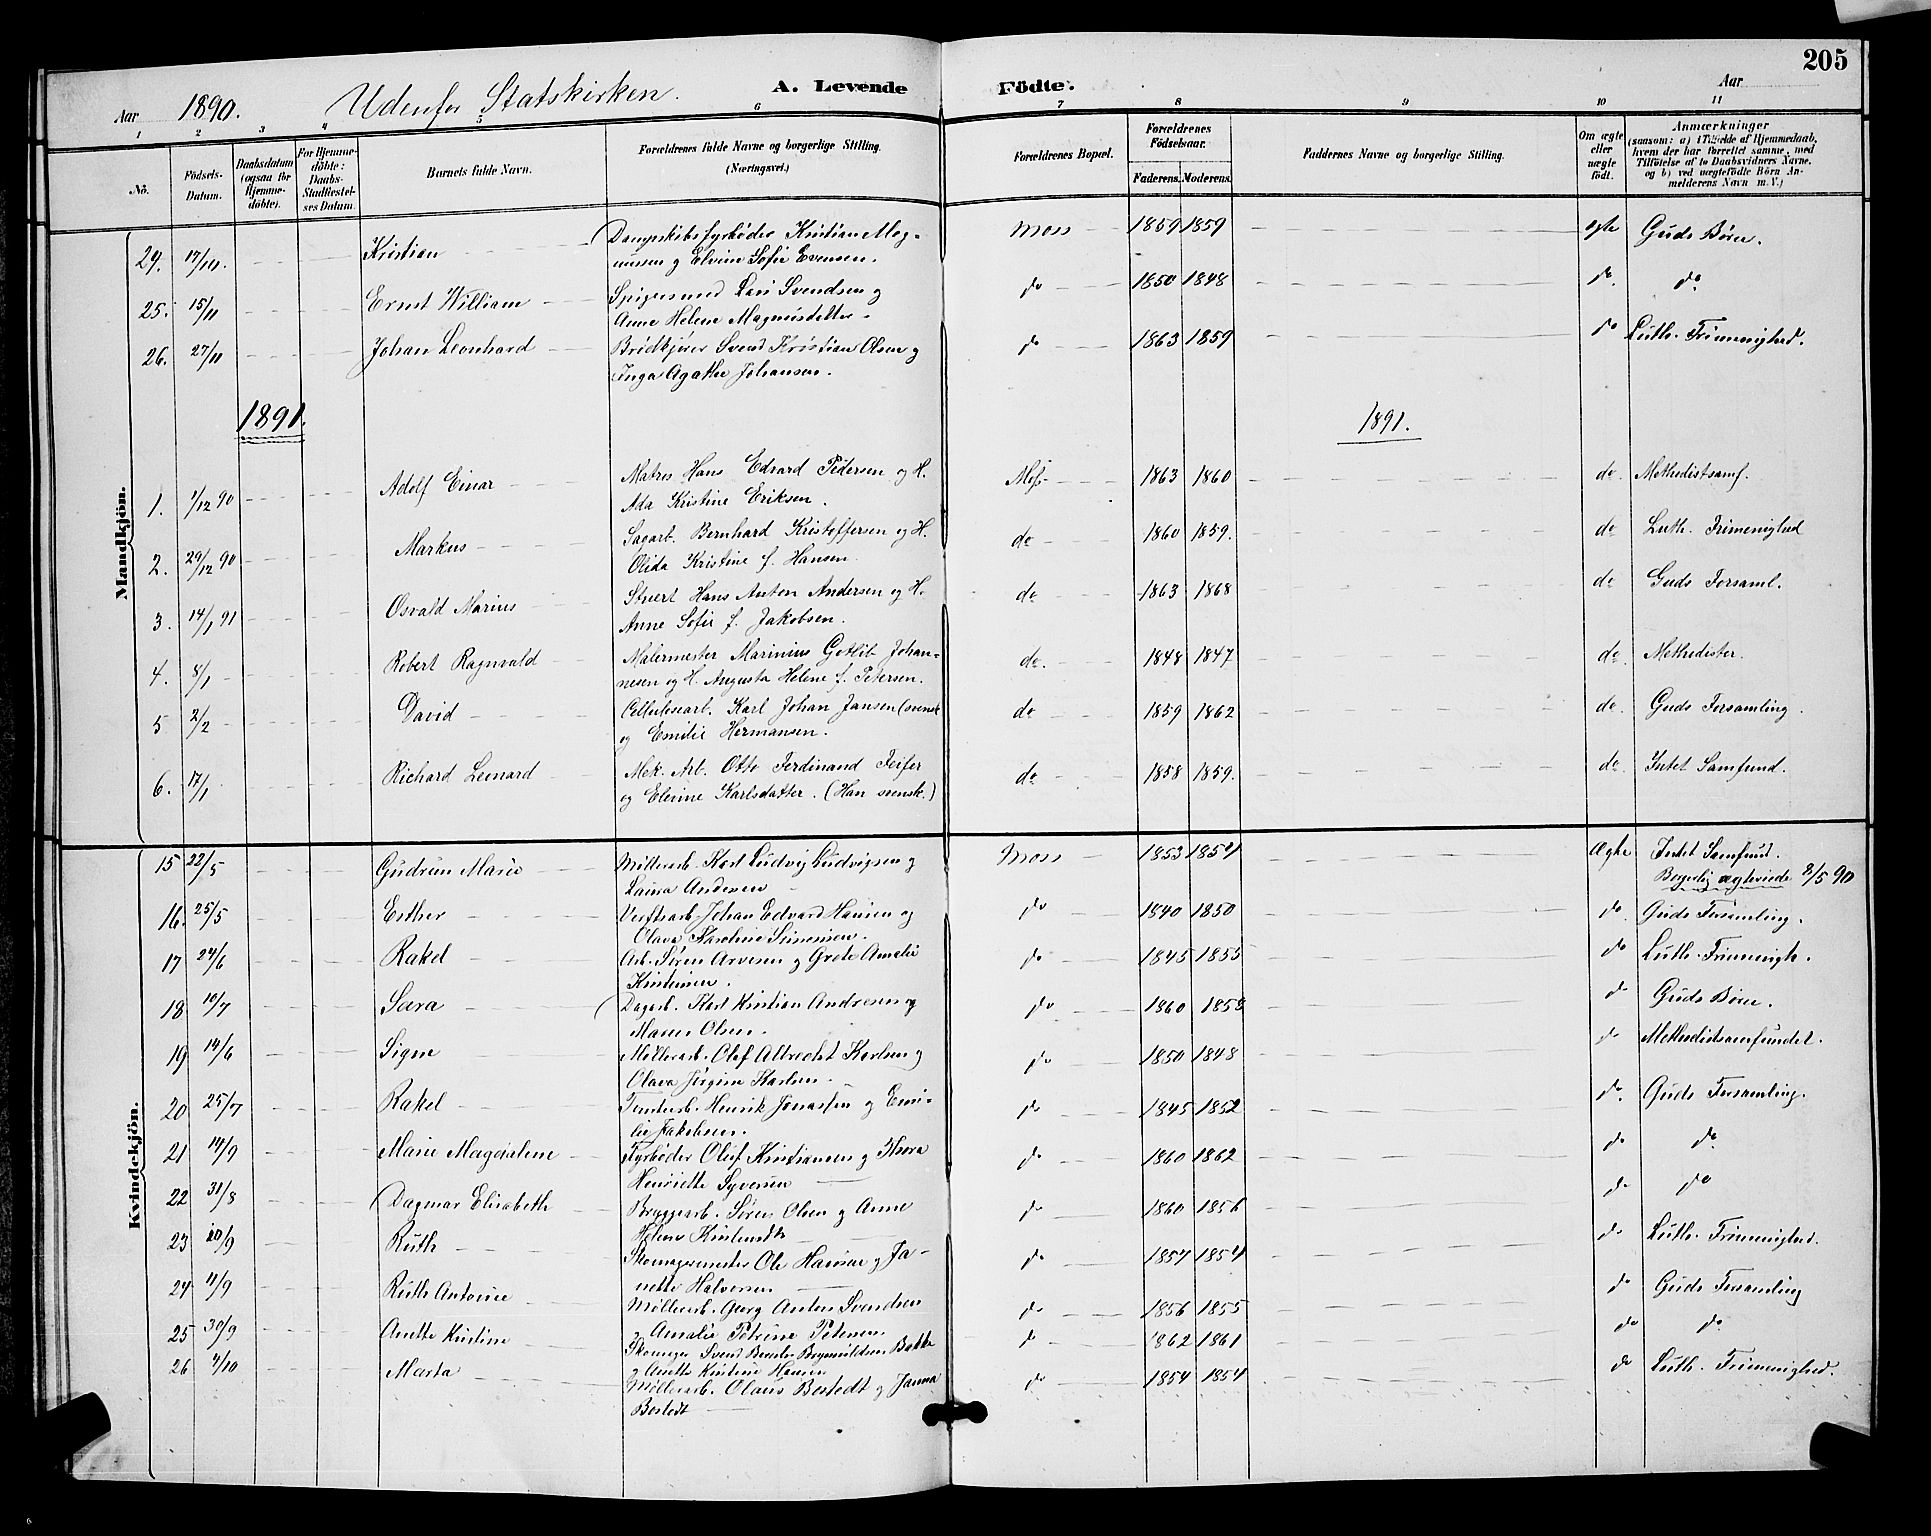 205
Aar 1890. Udenfor Statskirken. A. Levende Födte. Aar
1 2 3 4 5 6 7 8 9 10 11
No. Födsels-Datum. Daabsdatum (ogsaa for Hjemme-döbte). For Hjemme-döbte: Daabs-Stadfæstel-ses Datum. Barnets fulde Navn. Forældrenes fulde Navne og borgerlige Stilling. (Næringsvei.) Forældrenes Bopæl. Forældrenes Födselsaar. Faderens. Moderens. Faddernes Navne og borgerlige Stilling. Om ægte eller uægte födt. Anmærkninger (saasom: a) i Tilfælde af Hjemmedaab, hvem der har forrettet samme, med Tilföielse af to Daabsvidners Navne, og b) ved uægtefödte Börn An-melderens Navn m. V.)
Mandkjön.
24. 17/10. Kristian Dampskibsfyrbøder Kristian Mag- Moss 1859 1859 ægte Guds Børn.
nussen og Elvine Sofie Evensen.
25. 15/11 Ernst William Spigersmed Lars Svendsen og do 1850 1848 do. do
Anne Helene Magnusdatter
26. 27/11 Johan Leonhard Brødkjører Svend Kristian Olsen og do 1863 1859 do Luth. Frimenighed.
Inga Agathe Johansen.
1891. 1891.
1. 1/12 90 Adolf Einar Matros Hans Edvard Pedersen og H. Moss 1863 1860 do. Methodistsamf.
Ada Kristine Eriksen.
2. 29/12 90 Markus Sagarb. Bernhard Kristoffersen og H. do 1860 1859. do Luth. Frimenighed
Olida Kristine f. Hansen
3. 14/1 91 Osvald Marius Stuert Hans Anton Andersen og H. do 1863 1868 do Guds Forsaml.
Anne Sofie f. Jakobsen.
4. 8/1 Robert Ragnvald Malermester Marinius Gotlib Johan- do. 1848 1847 do. Methodister.
nesen og H. Augusta Helene f. Petersen.
5 2/2 David Cellulosearb. Karl Johan Jansen (svensk do 1859 1862 do. Guds Forsamling.
og Emilie Hermansen.
6. 17/1 Richard Lenard Mek. Arb. Otto Ferdinand Feifer do 1858 1859. do. Intet Samfund.
og Elevine Karlsdatter. (Han svensk.)
Kvindekjön.
15 22/5 Gudrun Marie Møllerarb. Karl Ludvig Ludvigsen og Moss 1853 1854 Ægte Intet Samfund.
Laura Andersen Borgerlig ægteviede 2/5 90
16. 25/5 Esther Verftsarb. Johan Edvard Hansen og do 1840 1850 do. Guds Forsamling.
Olava Karoline Simensen.
17 24/6 Rakel Arb. Søren Arvesen og Grete Amalie do 1845 1855 do Luth. Frimenigh.
Kristensen.
18 10/7 Sara Dagarb. Karl Kristian Andresen og do 1860 1858 do Guds Børn.
Maren Olsen.
19 14/6 Signe Møllerarb. Olaf Albrecht Karlsen og do 1850 1848 do Methodistsamfundet.
Olava Jørgine Karlsen.
20 25/7 Rakel Tomtearb. Henrik Jonassen og Emi- do 1845 1852 do. Guds Forsamling.
lie Jakobsen.
21 14/9 Marie Magdalene Fyrbøder Oluf Kristiansen og Thora do 1860 1862 do do
Henriette Syversen
22 31/8 Dagmar Elisabeth Bryggearb. Søren Olsen og Anne do 1860 1856 do do
Helene Kristensdtr
23 20/9 Ruth Skomagermester Ole Hansen og Ja- do 1854 1854 do Luth. Frimenighed.
nette Halvorsen
24 11/9 Ruth Antonie Møllerarb. Georg Anton Svendsen do 1856 1855 do Guds Forsamling
og Amalie Petrine Petersen
25 30/9 Anette Kristine Skomager Svend Bernhr. Brynnildsen Bakke do 1862 1861 do do
og Anette Kristine Hansen
26 4/10 Marta Møllerarb. Olaus Bostedt og Janna do 1854 1854 do Luth. Frimenighed.
Bostedt